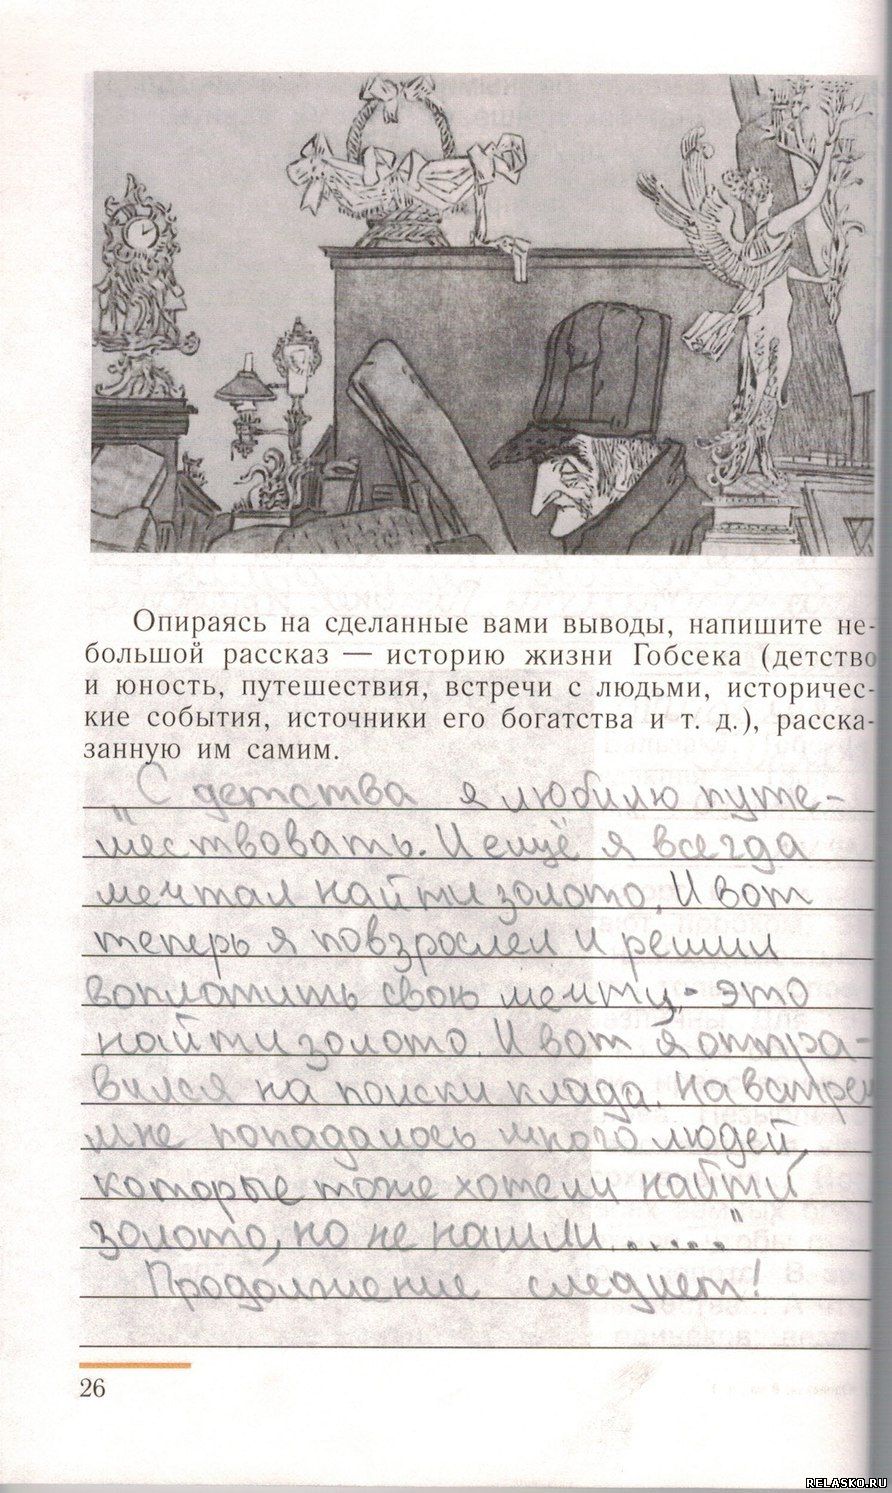 Опираясь на сделанные вами выводы, напишите не-
большой рассказ — историю жизни Гобсека (детство
и юность, путешествия, встречи с людьми, историчес-
кие события, источники его богатства и т. д.), расска-
занную им самим.
„С детства я люблю путе-
шествовать. И ещё я всегда
мечтал найти золото. И вот
теперь я повзрослел и решил
воплотить свою мечту - это
найти золото. И вот я отпра-
вился на поиски клада. На встречу
мне попадалось много людей,
которые тоже хотели найти
золото, но не нашли......"
Продолжение следует!
26
RELASKO.RU